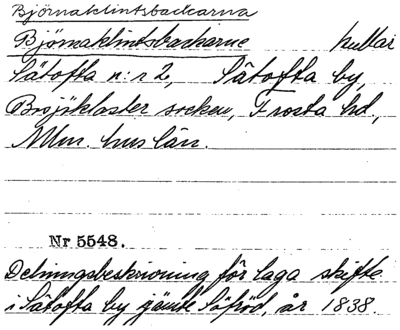 Björnaklintsbackarna
Björnaklintsbackarne kullar
Sätofta n:r 2, Sätofta by,
Bosjökloster socken, Frosta hd.,
Mlm. hus län.
Nr 5548.
Delningsbeskrivning för laga skifte
i Sätofta by jämte Söfröd, år 1838.